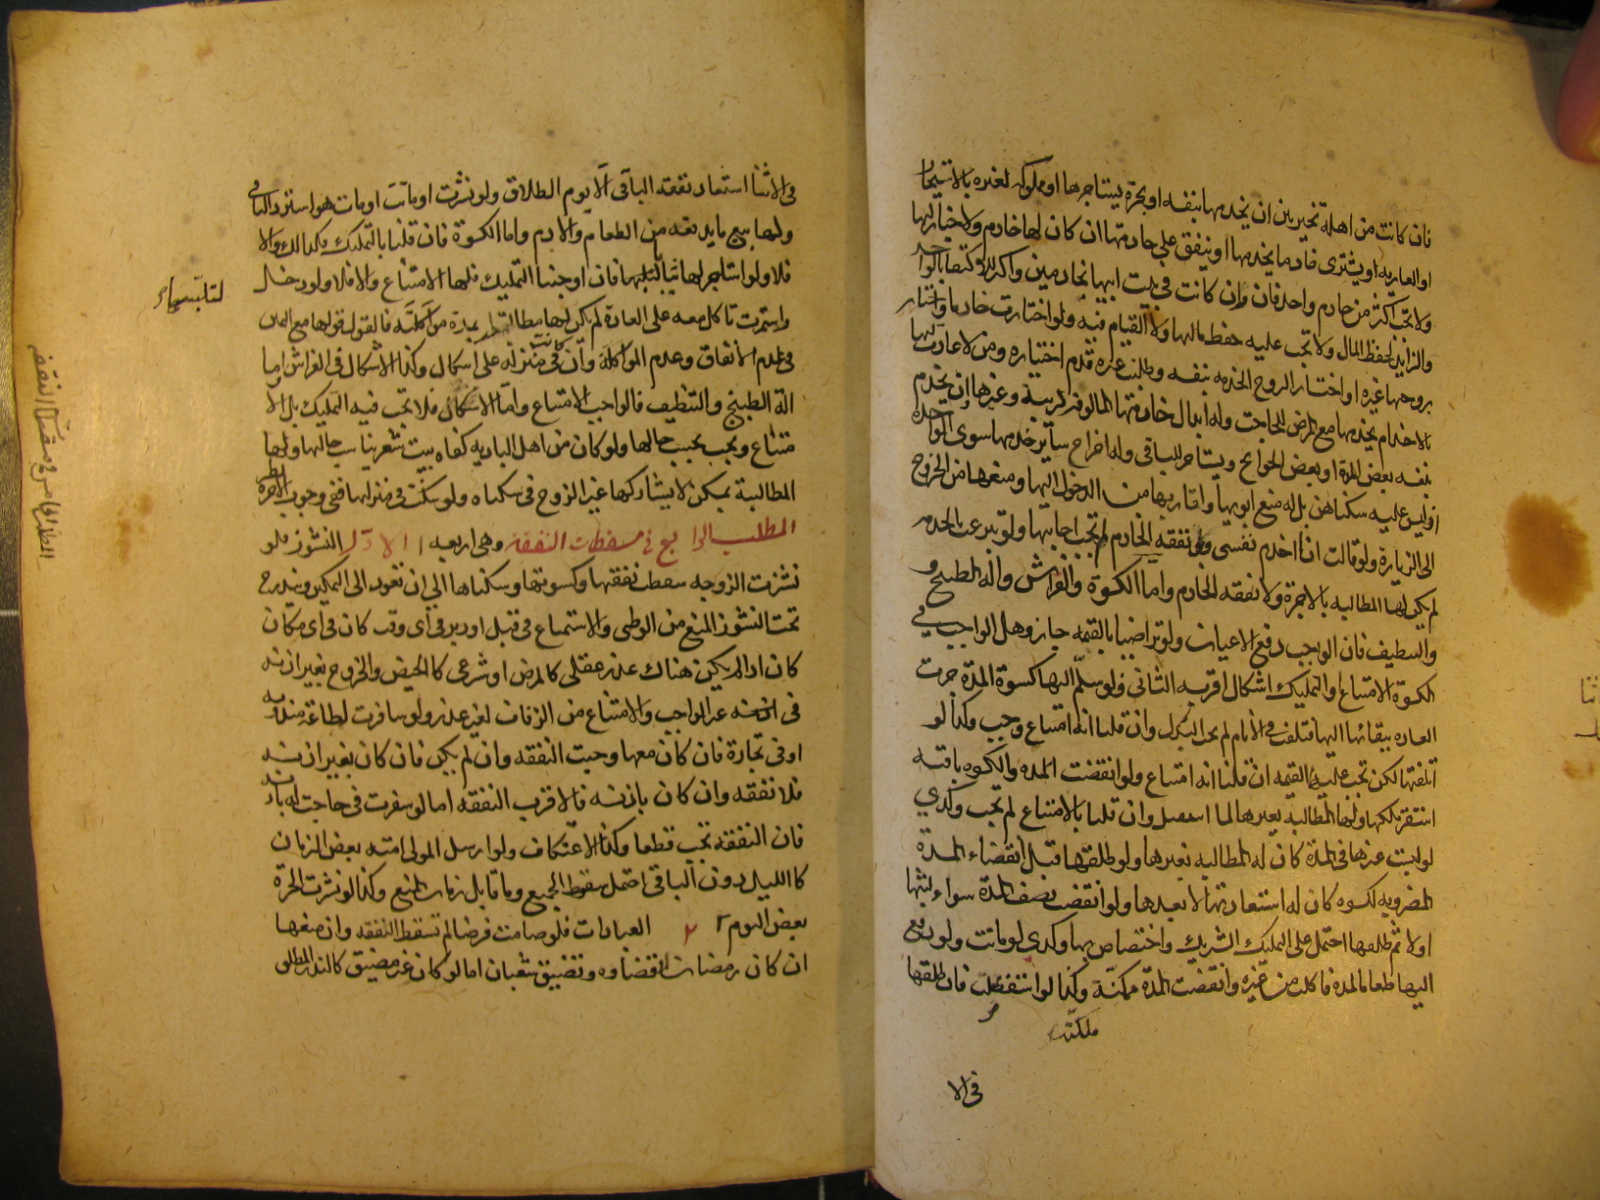 فان كانت من اهله تخير بين ان يخدمها بنفسه او بحرة يستاجرها او مملوكه لغيره بالاستيجار
او العاريه او يشترى خادما يخدمها او ينفق على خادمتها ان كان لها خادم ولا خيار لها
ولا تجب اكثر من خادم واحد فان وان كانت في بيت ابيها بخادمين واكثر للاكتفا بالواحد
والزايد لحفظ المال ولا تجب عليه حفظ مالها ولا القيام فيه ولو اختارت خادما واختار
زوجها غيره او اختار الزوج الخدمه بنفسه وطلبت غيره قدم اختياره ومن لا عادت لها
بالاخدام يخدمها مع المرض للحاجت وله ابدال خادمتها المالوفه لريبة وغيرها وان يخدم
بنفسه بعض المدة او بعض الحوائج ويستاجر للباقى وله اخراج ساير خدمها سوى الواحده
اذ ليس عليه سكناهن بل له منع ابويها واقاربها من الدخول اليها ومنعها من الخروج
الى الزيارة ولو قالت انا اخدم نفسى ولى نفقه الخادم لم تجب اجابتها ولو تبرعت بالخدمه
لم يكن لها المطالبه بالاجرة ولا نفقه الخادم واما الكسوة والفراش واله الطبخ و
والتنظيف فان الواجب دفع الاعيان ولو تراضيا بالقيمه جاز وهل الواجب فى
الكسوة الامتناع او التمليك اشكال اقربه الثانى فلو سلم اليها كسوة المدة جرت
العاده ببقائها اليها فتلفت فى الاثنا لم تجب البدل وان قلنا انه امتاع وجب وكذا لو
اتلفتها لكن تجب عليها القيمه ان قلنا انه امتاع ولو انقضت المده والكسوه باقيه
استقر ملكها ولها المطالبه بغيرها لما استقبل وان قلنا بالامتناع لم تجب وكذى
لو لبست غيرها فى المدة كان له المطالبه بغيرها ولو طلقها قبل انقضاء المدة
المضروبه لكسوه كان له استعادتها لا بعدها ولو انقضت نصف المدة سواء لبثها
اولا ثم طلقها احتمل على التمليك الشريك واختصاص بها وكذى لو ماتت ولو دفع
اليها طعاما لمدة فاكلت من غيره وانقضت المدة ممكنة وكذا لو استفضلت فان طلقها
ملكته
فى الا
فى الاثنا استعاد نفقه الباقى الا يوم الطلاق ولو نشزت او ماتت او مات هو استرد الباقى
ولها بيع ما يدفعه من الطعام والادم واما الكسوة فان قلنا بالتمليك فكذالك والا
فلا ولو استاجر لها ثيابا لتلبسها فان اوجبنا التمليك فلها الامتناع والا فلا ولو دخل
واستمرت تاكل معه على العادة لم يكن لها مطالبته بمدة مواكلته فالقول قولها مع اليمين
لتلبسها
فى عدم الانفاق وعدم المواكلة وان كانت فى منزله على اشكال وكذا الاشكال فى الفراش اما
الة الطبخ والتنظيف فالواجب الامتناع واما الاسكان فلا تجب فيه التمليك بل الا
متناع ويجب بحسب حالها ولو كان من اهل الباديه كفاه بيت شعر يناسب حالها ولها
المطالبة بمسكن لا يشاركها غير الزوج فى سكناه ولو سكنت فى منزلها ففى وجوب الاجرة نظر
المطلب الرابع فى مسقطات النفقة وهى اربعه ا الاول النشوز فلو
نشزت الزوجه سقطت نفقتها وكسوتها وسكناها الى ان تعود الى التمكين ويندرج
تحت النشوز المنع من الوطى والاستمتاع فى قبل او دبر فى اى وقت كان فى اى مكان
كان اذا لم يكن هناك عذر عقلى كالمرض او شرعى كالحيض والخروج بغير اذنه
فى غير الواجب والامتناع من الزفاف لغير عذر ولو سافرت لطاعة مندوبه
او فى تجارة فان كان معها وجبت النفقه وان لم يكن فان كان بغير اذنه
فلا نفقه وان كان باذنه فالاقرب النفقه اما لو سفرت فى حاجت له باذنه
فان النفقه تجب قطعا وكذا الاعتكاف ولو ارسل المولى امته بعض الزمان
كالليل دون الباقى احتمل سقوط الجميع وما قابل زمان المنع وكذا لو نشزت الحرة
بعض اليوم ٢ العبادات فلو صامت فرضا لم تسقط النفقه وان منعها
ان كان رمضان او قضاوه وتضيق شعبان اما لو كان غير مضيق كالنذر المطلق